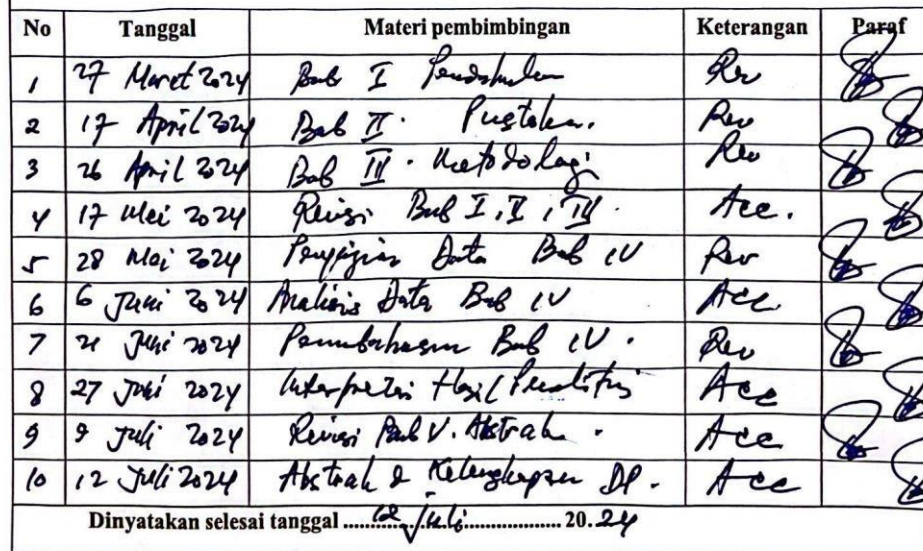 No Tanggal Materi pembimbingan Keterangan Paraf
1 27 Maret 2024 Bab I Pendahuluan Rev
2 17 April 2024 Bab II. Pustaka. Rev
3 26 April 2024 Bab III. Metodologi Rev
4 17 Mei 2024 Revisi Bab I, II, III. Acc.
5 28 Mei 2024 Penyajian Data Bab IV Rev
6 6 Juni 2024 Analisis Data Bab IV Acc.
7 21 Juni 2024 Pembahasan Bab IV. Rev
8 27 Juni 2024 Hasil Penelitian Acc
9 9 Juli 2024 Revisi Bab V. Abstrak. Acc
10 12 Juli 2024 Abstrak & Kelengkapan Acc
Dinyatakan selesai tanggal 12 Juli 20.24